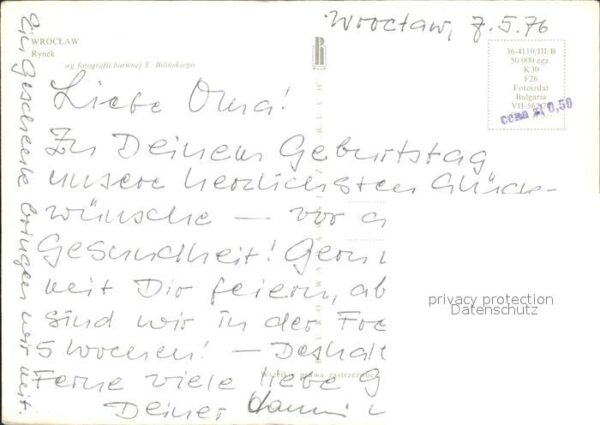 Wrocław, 7.5.76
WROCŁAW
Rynek
wg fotografii barwnej T. Bilińskiego
36-4110/III/B
50 000 egz.
K30
F26
Fotoizdat
Bulgaria
VII-562
cena zł 0,50
Liebe Oma!
Zu Deinem Geburtstag
unsere herzlichsten Glück-
wünsche – vor a
Gesundheit! Gern
mit Dir feiern, ab
sind wir in der Fre
5 Wochen! – Deshalb
Ferne viele liebe G
Deiner Hanni
Ein Geschenk bringen wir mit.
privacy protection
Datenschutz